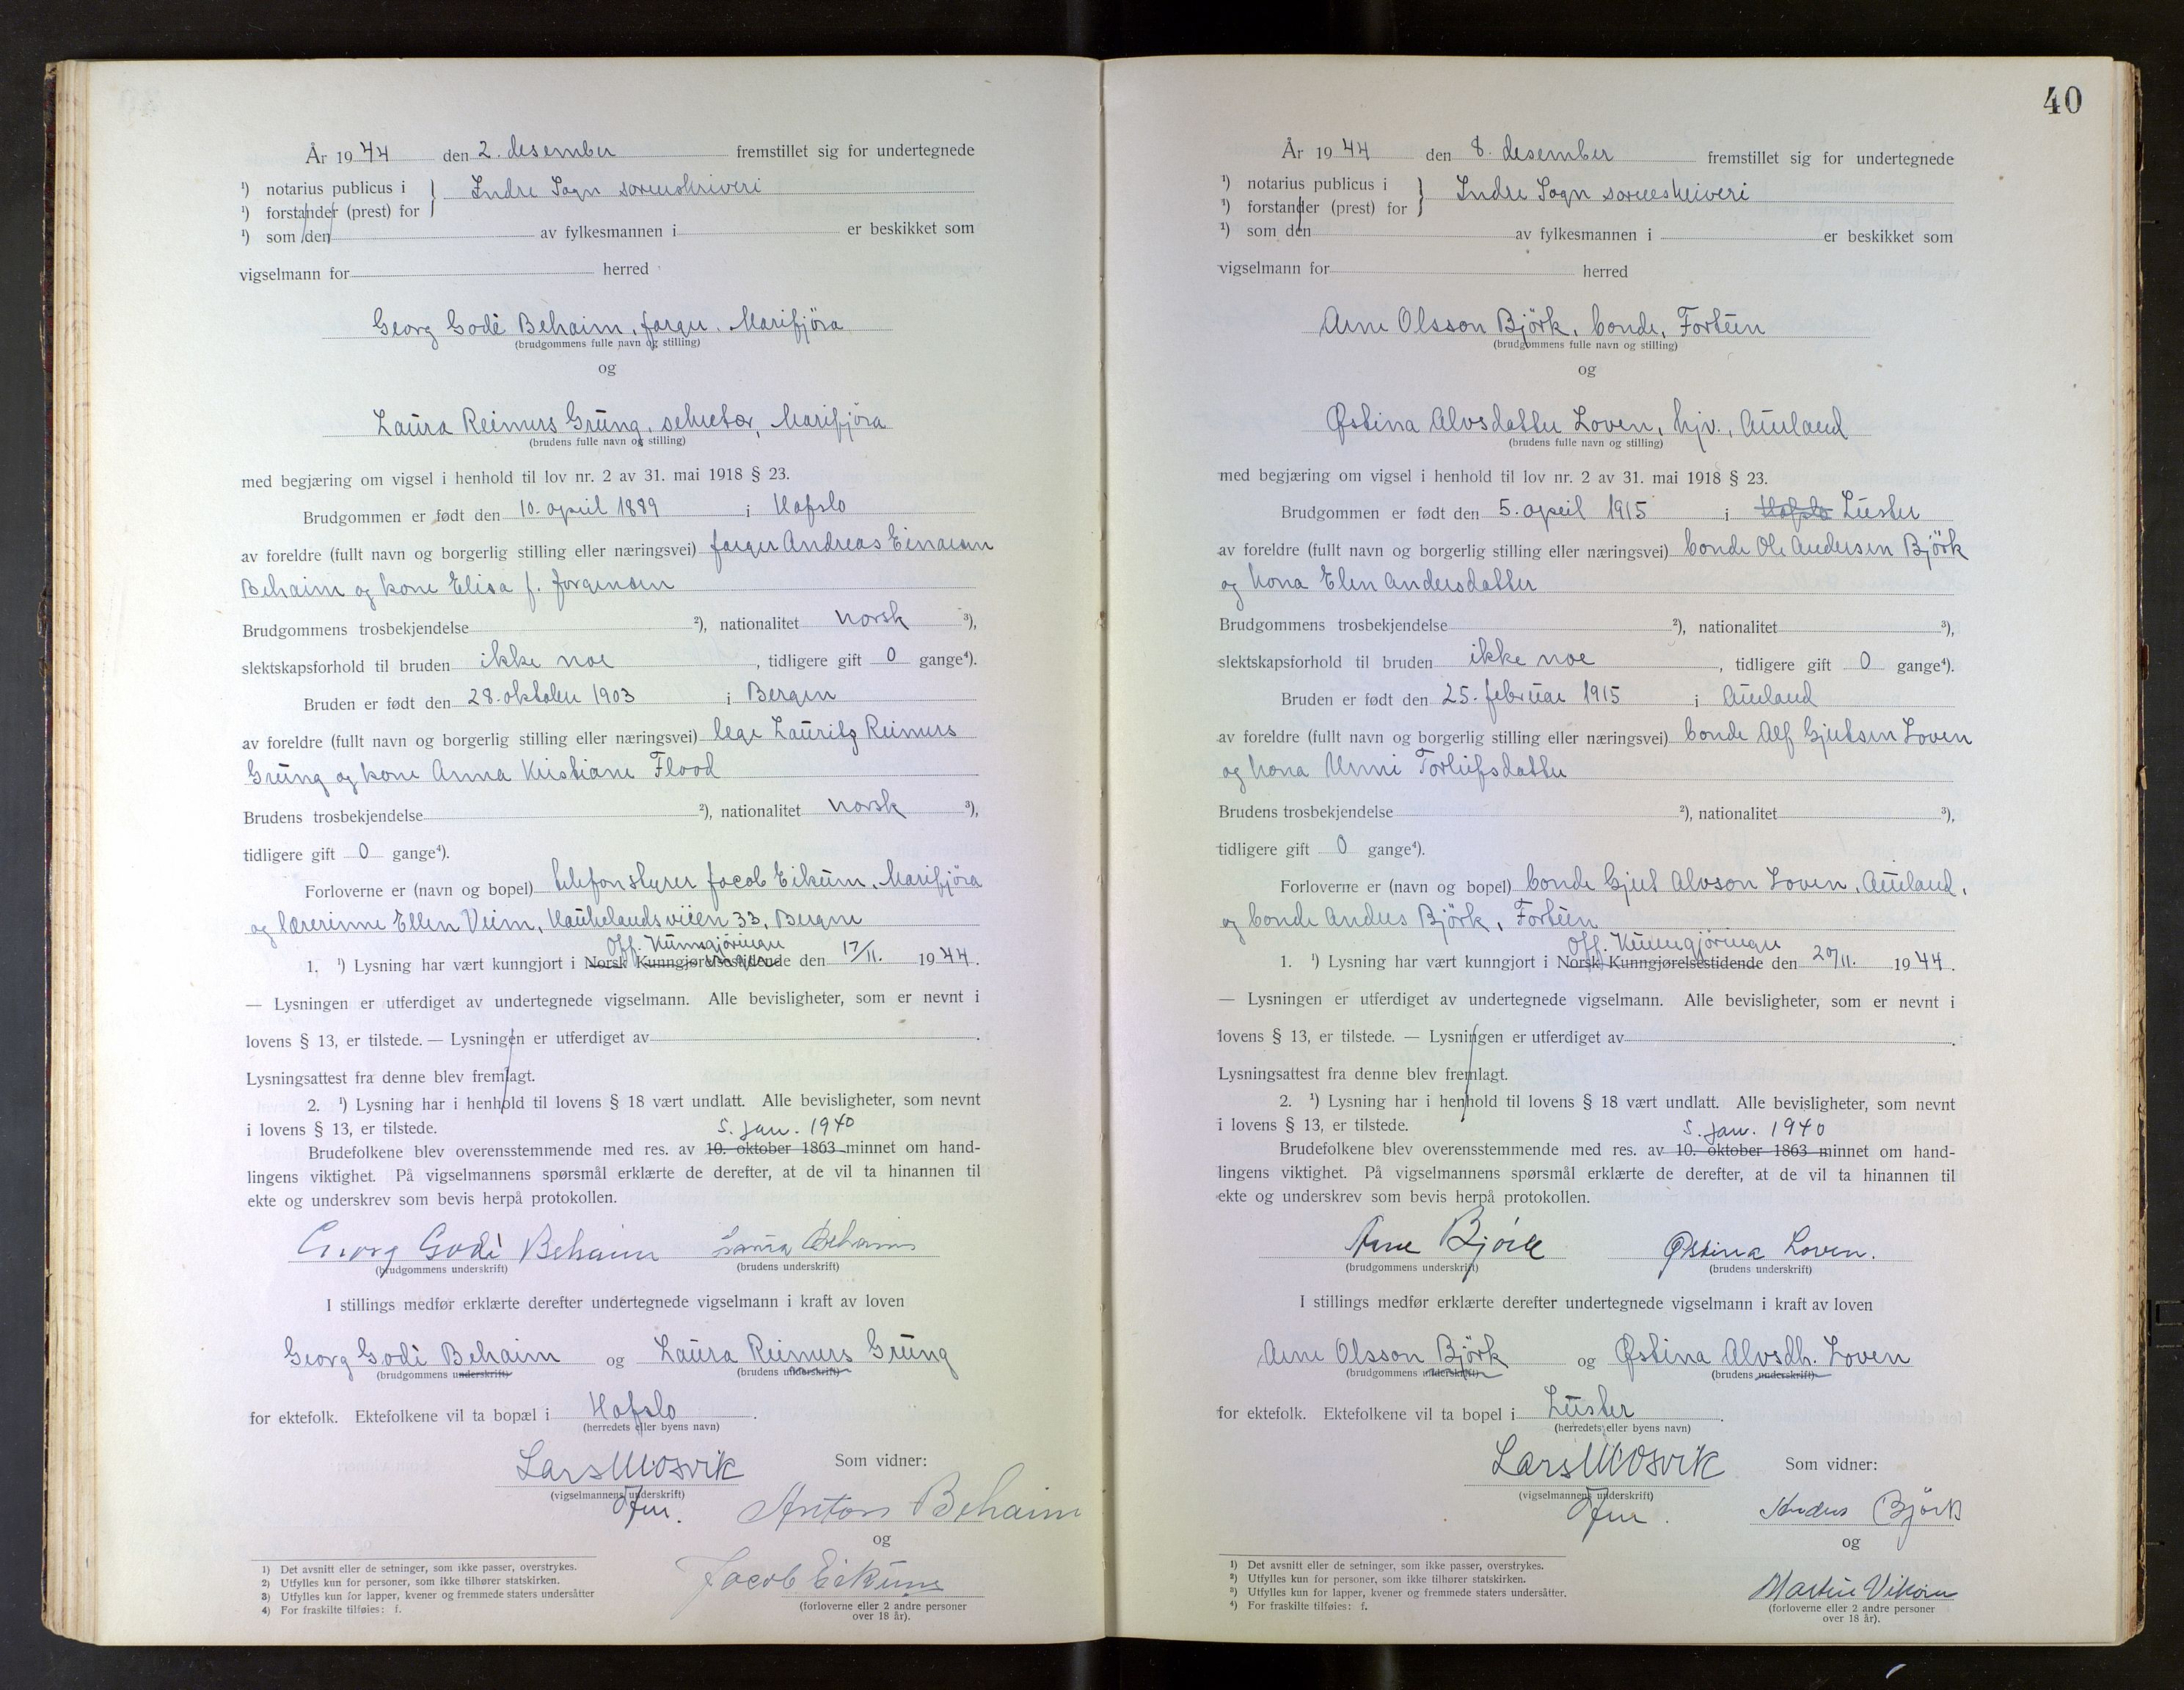 År 1944 den 2. desember fremstillet sig for undertegnede
¹) notarius publicus i } Indre Sogn sorenskriveri
¹) forstander (prest) for
¹) som den av fylkesmannen i er beskikket som
vigselmann for herred
Georg Godè Behaim, farger, Marifjöra
(brudgommens fulle navn og stilling)
og
Laura Reimers Grung, sekretær, Marifjöra
(brudens fulle navn og stilling)
med begjæring om vigsel i henhold til lov nr. 2 av 31. mai 1918 § 23.
Brudgommen er født den 10. april 1889 i Hafslo
av foreldre (fullt navn og borgerlig stilling eller næringsvei) farger Andreas Einarsen
Behaim og kone Elisa f. Jørgensen
Brudgommens trosbekjendelse ²), nationalitet norsk ³),
slektskapsforhold til bruden ikke noe, tidligere gift 0 gange⁴).
Bruden er født den 28. oktober 1903 i Bergen
av foreldre (fullt navn og borgerlig stilling eller næringsvei) lege Lauritz Reimers
Grung og kone Anna Kristiane Flood
Brudens trosbekjendelse ²), nationalitet norsk ³),
tidligere gift 0 gange⁴).
Forloverne er (navn og bopel) telefonstyrer Jacob Eikum, Marifjöra
og lærerinne Ellen Veim, Haukelandsveien 33, Bergen
Off. Kunngjøringer
1. ¹) Lysning har vært kunngjort i Norsk Kunngjørelsestidende den 17/11. 1944.
— Lysningen er utferdiget av undertegnede vigselmann. Alle bevisligheter, som er nevnt i
lovens § 13, er tilstede. — Lysningen er utferdiget av .
Lysningsattest fra denne blev fremlagt.
2. ¹) Lysning har i henhold til lovens § 18 vært undlatt. Alle bevisligheter, som nevnt
i lovens § 13, er tilstede.
5. jan. 1940
Brudefolkene blev overensstemmende med res. av 10. oktober 1863 minnet om hand-
lingens viktighet. På vigselmannens spørsmål erklærte de derefter, at de vil ta hinannen til
ekte og underskrev som bevis herpå protokollen.
Georg Godè Behaim Laura Behaim
(brudgommens underskrift) (brudens underskrift)
I stillings medfør erklærte derefter undertegnede vigselmann i kraft av loven
Georg Godè Behaim og Laura Reimers Grung
(brudgommens underskrift) (brudens underskrift)
for ektefolk. Ektefolkene vil ta bopæl i Hafslo.
(herredets eller byens navn)
Lars M Osvik Som vidner:
(vigselmannens underskrift)
Anton Behaim
og
Jacob Eikum
(forloverne eller 2 andre personer
over 18 år).
1) Det avsnitt eller de setninger, som ikke passer, overstrykes.
2) Utfylles kun for personer, som ikke tilhører statskirken.
3) Utfylles kun for lapper, kvener og fremmede staters undersåtter
4) For fraskilte tilføies: f.
40
År 1944 den 8. desember fremstillet sig for undertegnede
¹) notarius publicus i } Indre Sogn sorenskriveri
¹) forstander (prest) for
¹) som den av fylkesmannen i er beskikket som
vigselmann for herred
Arne Olsson Björk, bonde, Fortun
(brudgommens fulle navn og stilling)
og
Østina Alvsdatter Loven, hjv., Aurland
(brudens fulle navn og stilling)
med begjæring om vigsel i henhold til lov nr. 2 av 31. mai 1918 § 23.
Brudgommen er født den 5. april 1915 i Hafslo Luster
av foreldre (fullt navn og borgerlig stilling eller næringsvei) bonde Ole Andersen Björk
og kona Elen Andersdatter
Brudgommens trosbekjendelse ²), nationalitet ³),
slektskapsforhold til bruden ikke noe, tidligere gift 0 gange⁴).
Bruden er født den 25. februar 1915 i Aurland
av foreldre (fullt navn og borgerlig stilling eller næringsvei) bonde Alf Gjertsen Loven
og kona Unni Torleifsdatter
Brudens trosbekjendelse ²), nationalitet ³),
tidligere gift 0 gange⁴).
Forloverne er (navn og bopel) bonde Gjert Alvson Loven, Aurland,
og bonde Anders Björk, Fortun
Off. Kunngjøringer
1. ¹) Lysning har vært kunngjort i Norsk Kunngjørelsestidende den 20/11. 1944.
— Lysningen er utferdiget av undertegnede vigselmann. Alle bevisligheter, som er nevnt i
lovens § 13, er tilstede. — Lysningen er utferdiget av .
Lysningsattest fra denne blev fremlagt.
2. ¹) Lysning har i henhold til lovens § 18 vært undlatt. Alle bevisligheter, som nevnt
i lovens § 13, er tilstede.
5. jan. 1940
Brudefolkene blev overensstemmende med res. av 10. oktober 1863 minnet om hand-
lingens viktighet. På vigselmannens spørsmål erklærte de derefter, at de vil ta hinannen til
ekte og underskrev som bevis herpå protokollen.
Arne Björk Østina Loven.
(brudgommens underskrift) (brudens underskrift)
I stillings medfør erklærte derefter undertegnede vigselmann i kraft av loven
Arne Olsson Björk og Østina Alvsdtr. Loven
(brudgommens underskrift) (brudens underskrift)
for ektefolk. Ektefolkene vil ta bopel i Luster.
(herredets eller byens navn)
Lars M Osvik Som vidner:
(vigselmannens underskrift)
Anders Björk
og
Martin Vikøren
(forloverne eller 2 andre personer
over 18 år).
1) Det avsnitt eller de setninger, som ikke passer, overstrykes.
2) Utfylles kun for personer, som ikke tilhører statskirken.
3) Utfylles kun for lapper, kvener og fremmede staters undersåtter.
4) For fraskilte tilføies: f.